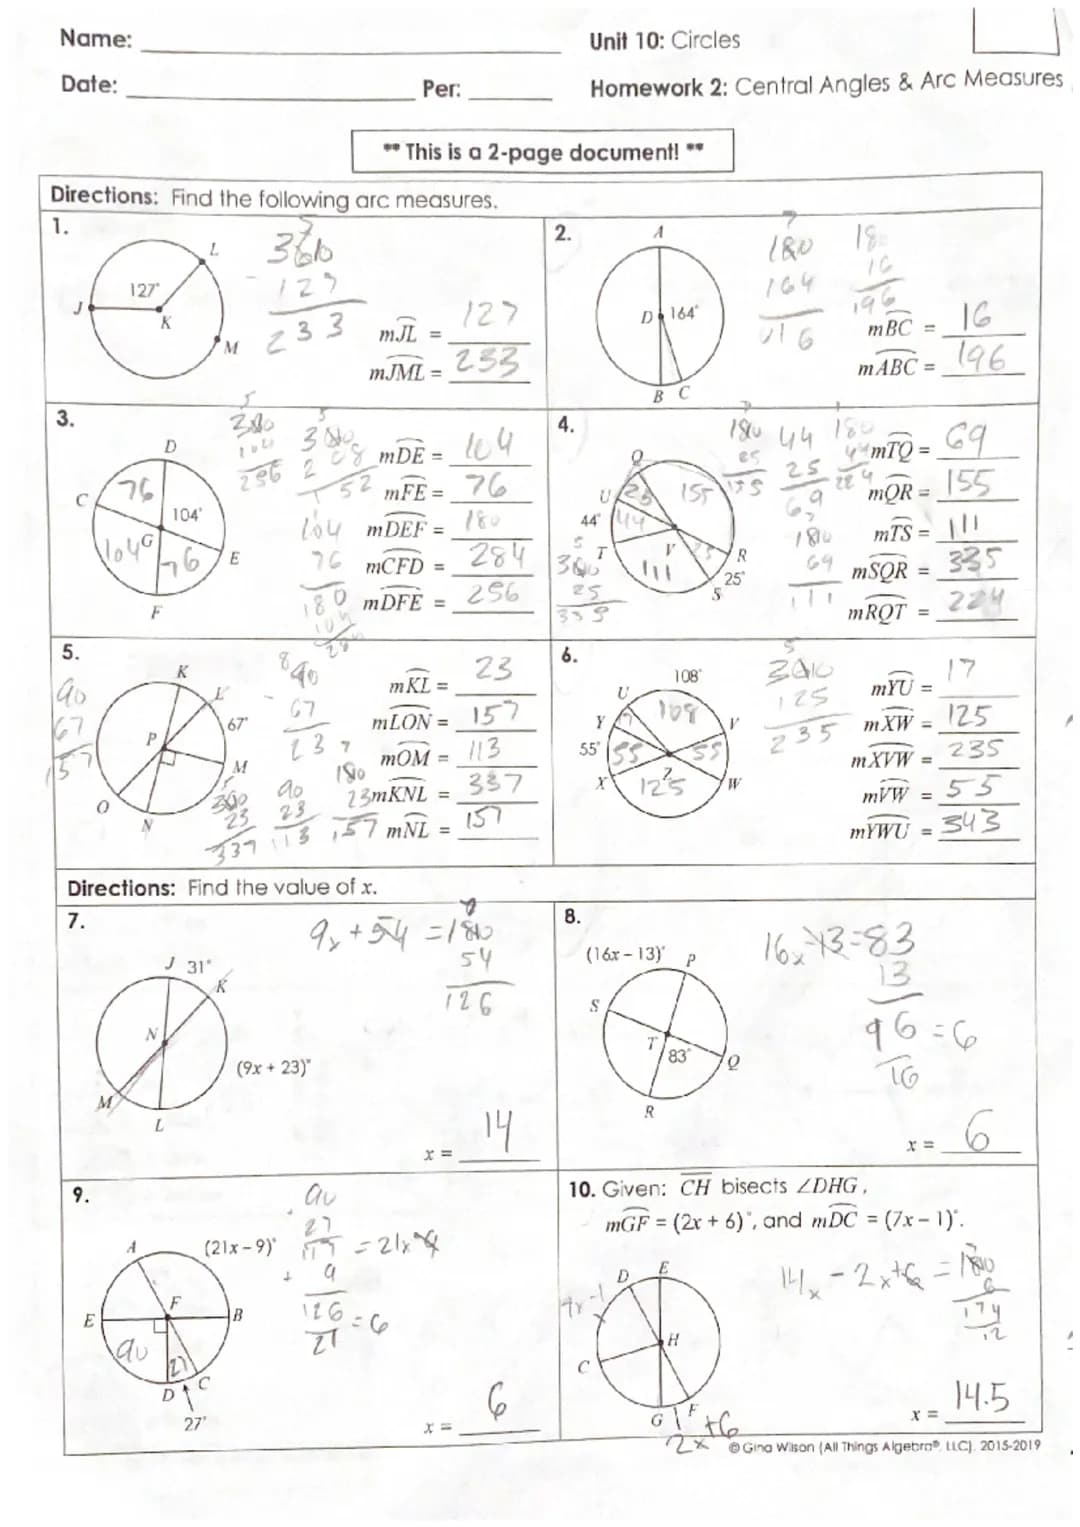 Name:
Unit 10: Circles
Date:
Per:
Homework 2: Central Angles & Arc Measures
** This is a 2-page document! **
Directions: Find the following arc measures.
1.
L
127°
J
K
M
360
- 127
233
mJL = 127
mJML = 233
2.
A
D
164°
B C
180
164
016
180
16
196
mBC = 16
mABC = 196
3.
D
C
76
104°
G
104
76
E
F
360
104
256
360
208
152
104
76
180
104
284
mDE = 104
mFE = 76
mDEF = 180
mCFD = 284
mDFE = 256
4.
Q
U
25
155
44°
44
T
V
25
R
111
25°
S
180
25
155
44
25
69
180
44
224
360
25
335
180
69
111
mTQ = 69
mQR = 155
mTS = 111
mSQR = 335
mRQT = 224
5.
K
L
67°
P
M
O
N
90
67
157
90
- 67
23
360
23
337
90
23
113
180
23
157
mKL = 23
mLON = 157
mOM = 113
mKNL = 337
mNL = 157
6.
108°
U
108
Y
17
V
55°
55
55
Z
X
125
W
360
125
235
mYU = 17
mXW = 125
mXVW = 235
mVW = 55
mYWU = 343
Directions: Find the value of x.
7.
9x + 54 = 180
54
126
J 31°
K
N
(9x + 23)°
M
L
x = 14
8.
(16x – 13)°
P
S
T
83°
Q
R
16x-13=83
13
96 = 6
16
x = 6
9.
A
(21x – 9)°
F
E
B
90
27
D
C
27°
90
27
117 = 21x-9
+ 9
126 = 6
21
x = 6
10. Given: CH bisects ∠DHG,
mGF = (2x + 6)°, and mDC = (7x – 1)°.
D
E
7x-1
H
C
G
F
2x+6
14x - 2x+6 = 180
6
174
12
x = 14.5
© Gina Wilson (All Things Algebra®, LLC), 2015-2019